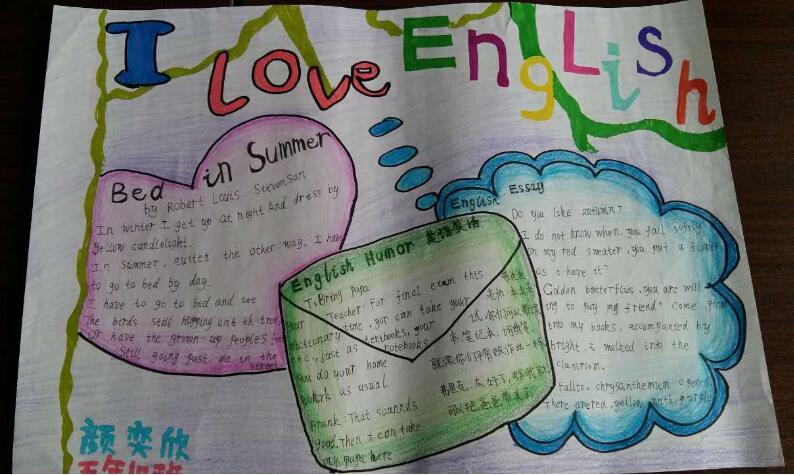 I LOVE EngLish
Bed in Summer
by Robert Louis Stevenson
In winter I get up at night And dress by
yellow candlelight.
In Summer, quites the other way, I have
to go to bed by day.
I have to go to bed and see
The birds still hopping on th tree,
Or have the grown up people's feet
Still going past me in the
street
English Humor 英语笑话
T: Bring Papa
Teacher: For final exam this
time, yor can take your
dictionary, textbooks, your
etc., just as notebooks
you do your home
Work as usual.
Frank: That sounnds
good. Then I can take
my papa here
老师:
试,你们可以
本,笔记本,词典等
就像你们平常做作业一样
弗兰克:太好了,
可以把爸爸带来了
English Essay
Do you like autumn?
I do not know when you fall softly
on my red sweater, you put a flower
as i have it?
Golden butterflies, you are will
ing to pay my friend? Come from
into my books, accompanied by
bright. i malked into the
classroom.
Fallto, chrysanthemum opened,
There arered, yellow, with, purple
颜奕欣
五年四班